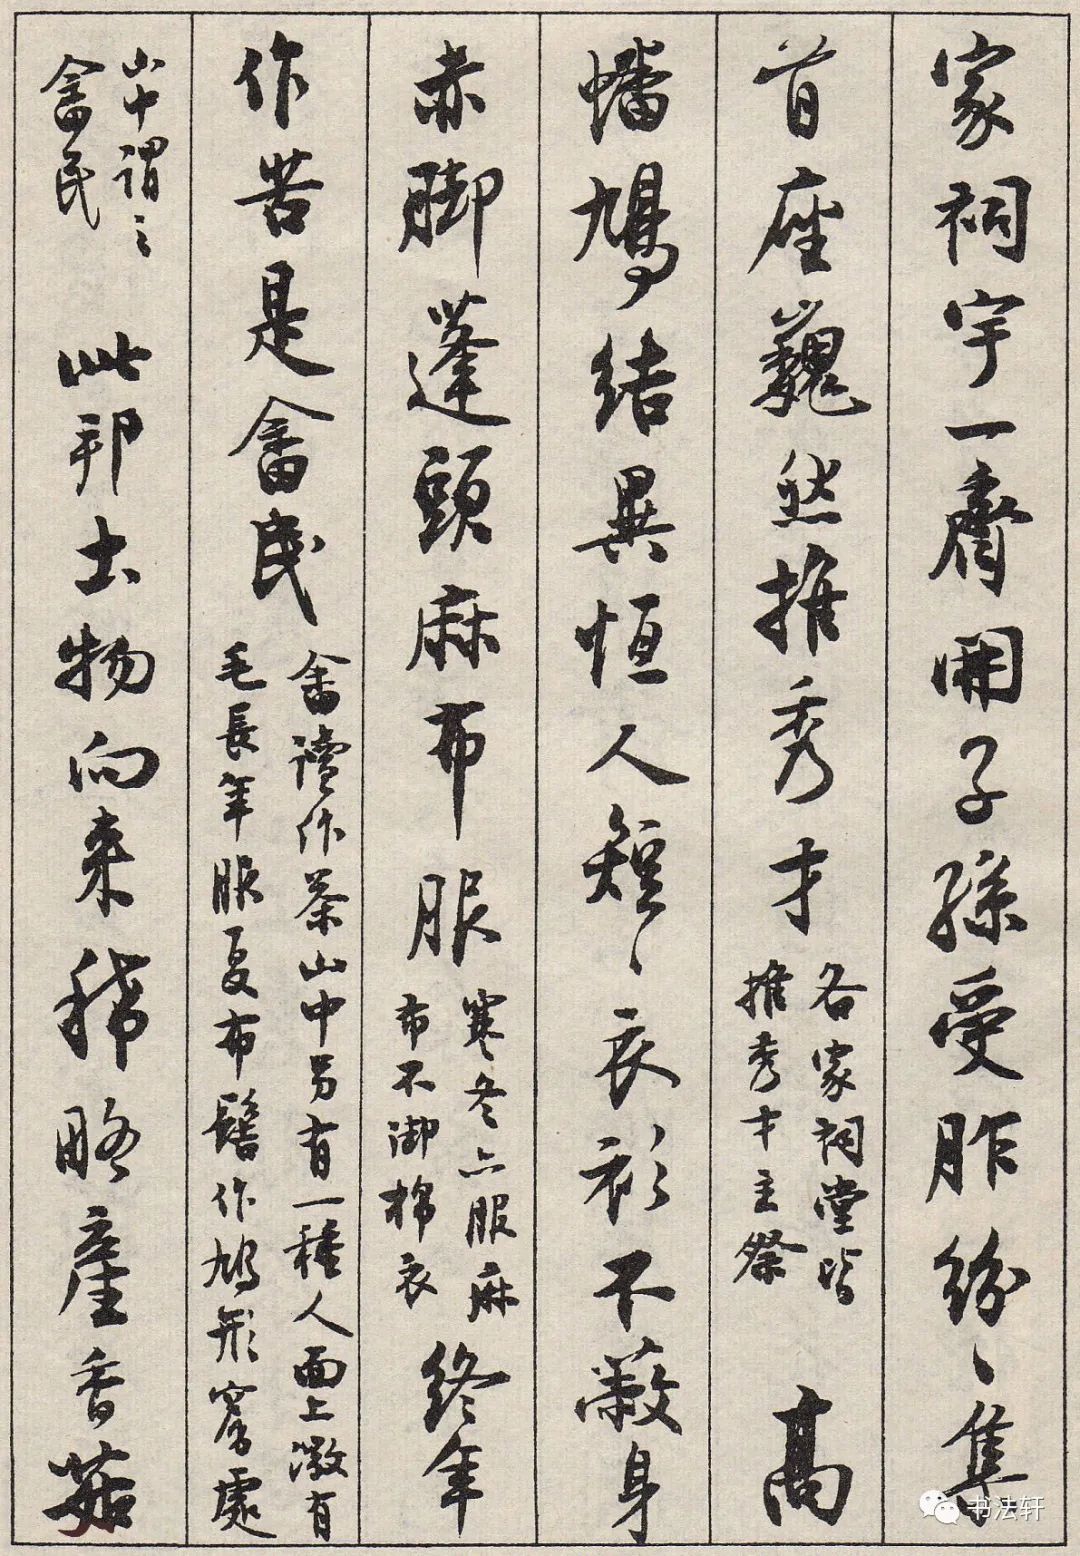 家祠宇一齊開子孫受胙紛紛集
首座巍然推秀才
各家祠堂皆
推秀才主祭
高
幡鳩結異恒人短短衣衫不蔽身
赤脚蓬頭麻布服
寒冬亦服麻
布不御棉衣
終年
作苦是畬民
畬讀作茶山中另有一種人面上微有
毛長年服夏布髻作鳩形窮處
山中謂之
畬民
此邦土物向来稀略產香菇
书法轩